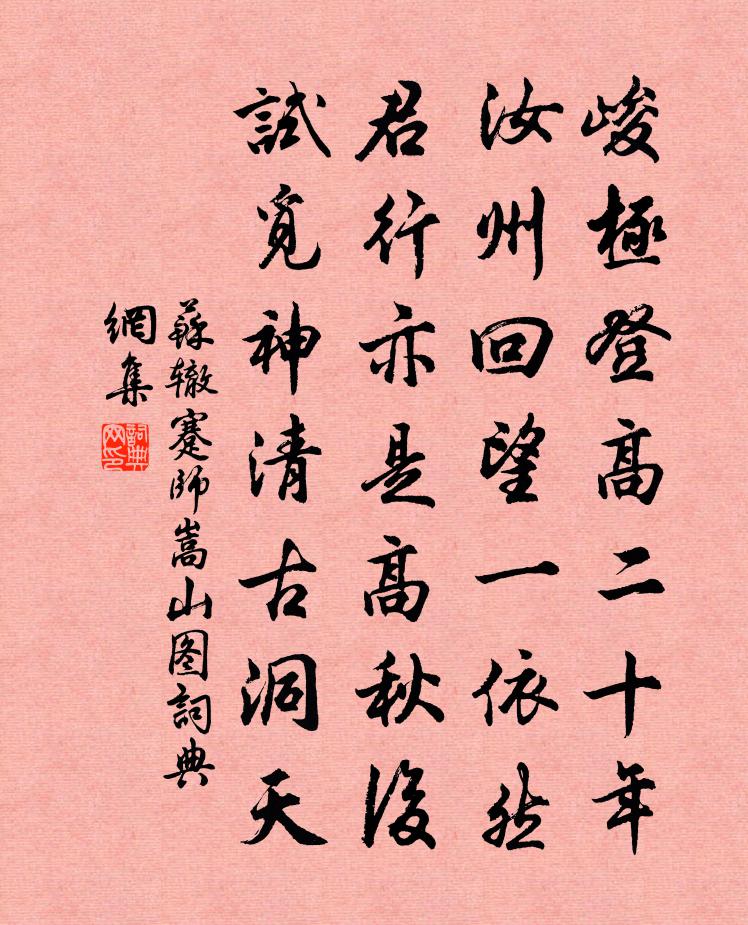 峻極登高二十年
汝州回望一依然
君行亦是高秋後
試覓神清古洞天
蘇辙蹇師嵩山图詞典
網集
詞典
网印